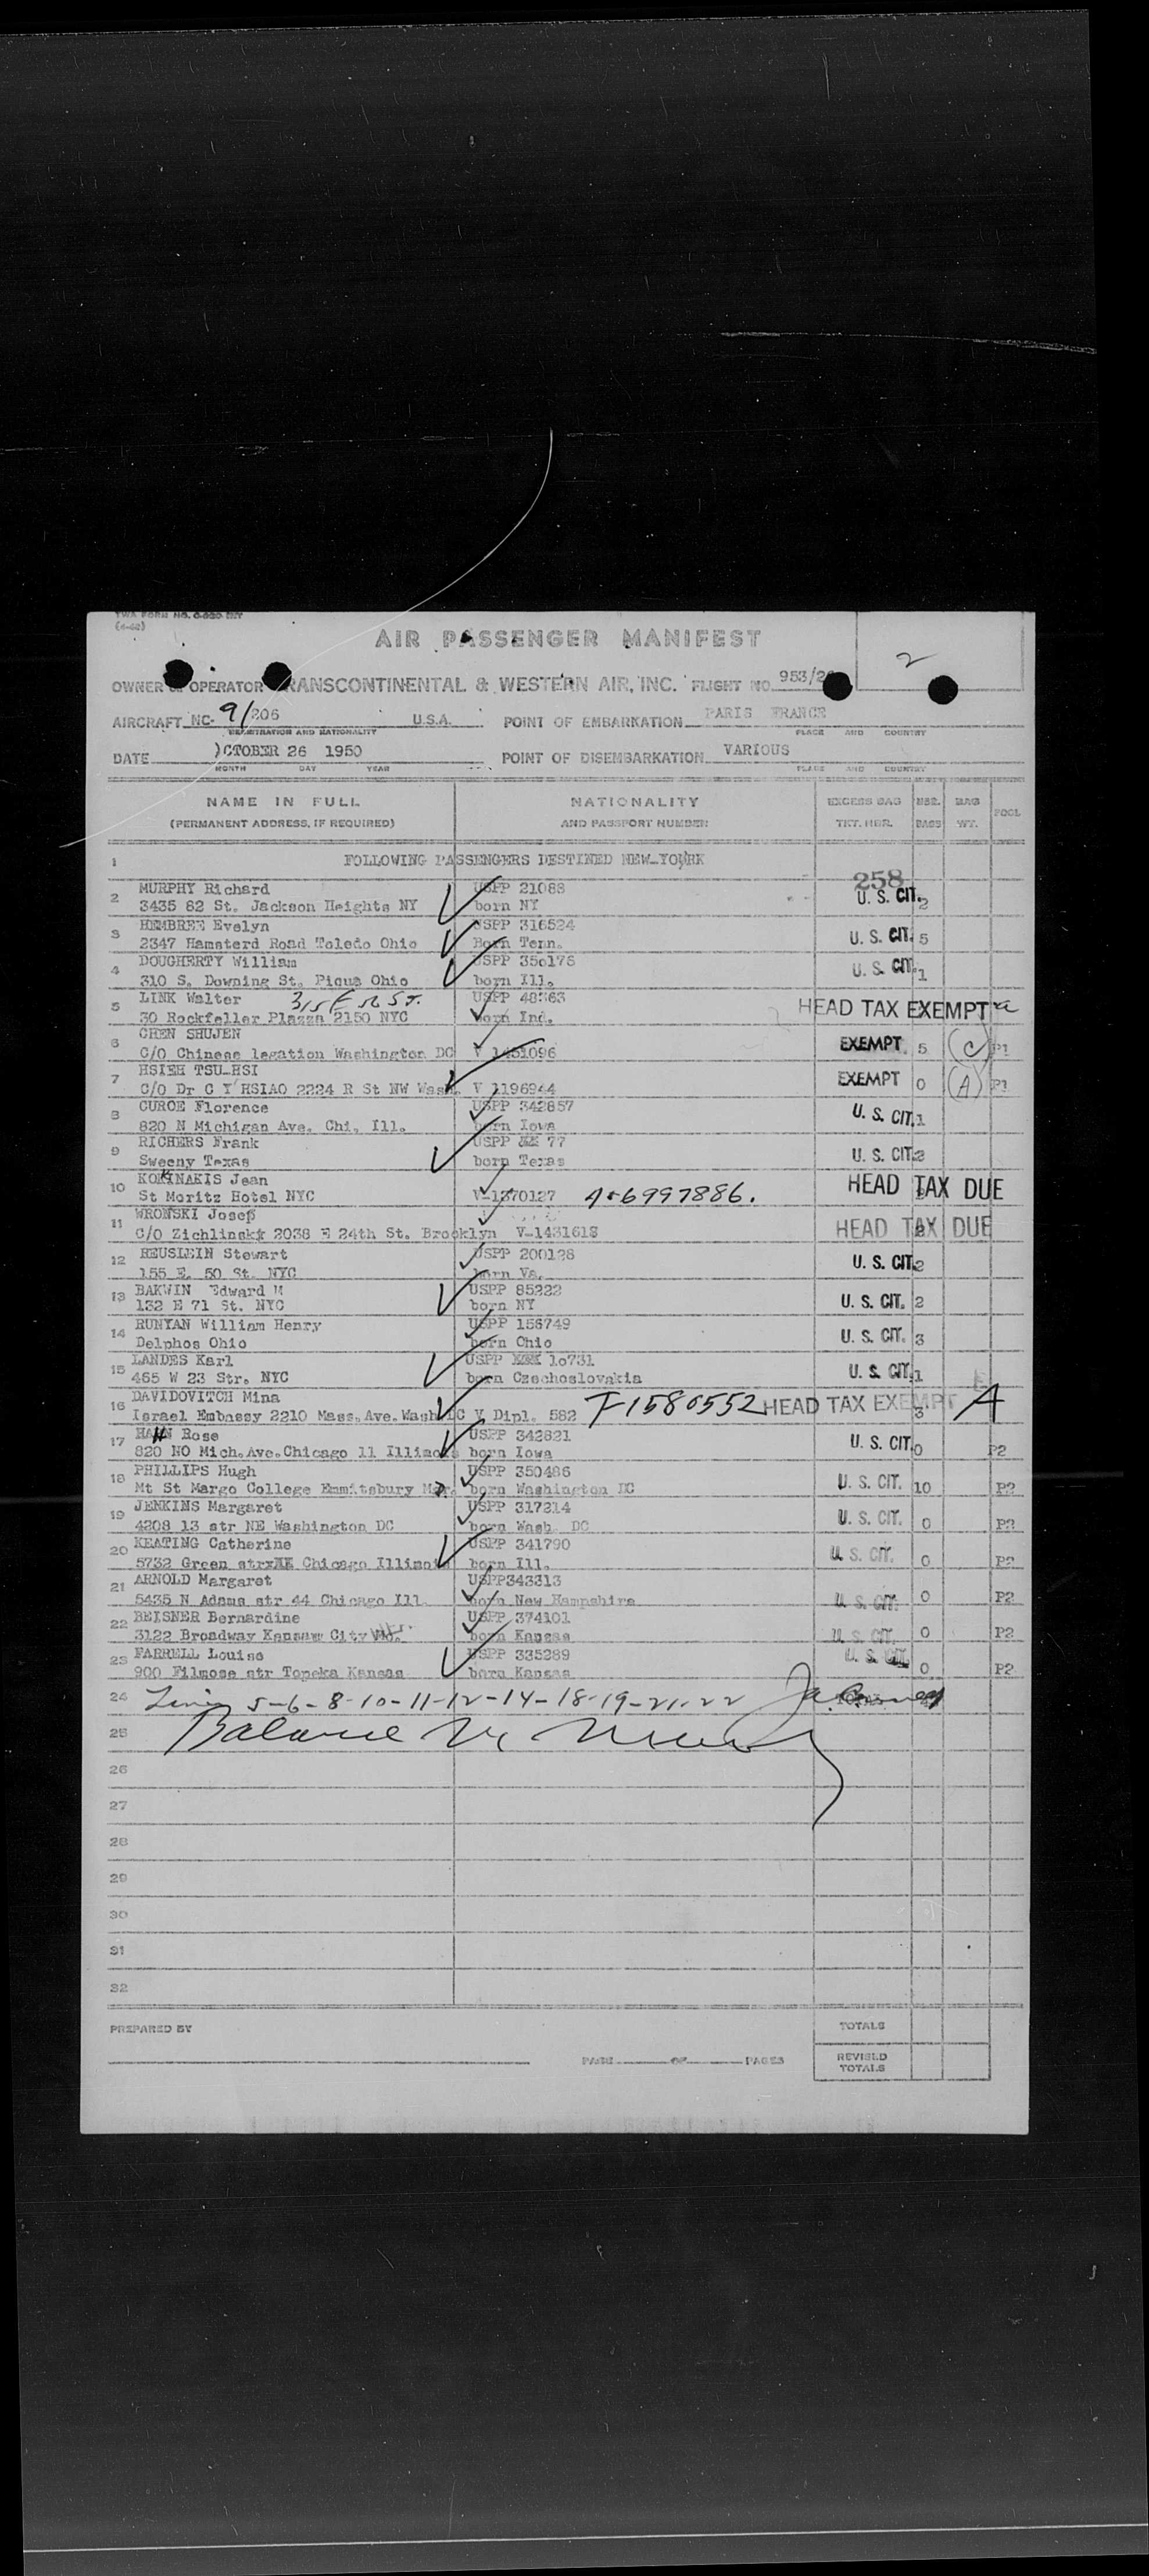 TWA FORM NO.
AIR PASSENGER MANIFEST
2
OWNER OPERATOR TRANSCONTINENTAL & WESTERN AIR, INC. FLIGHT NO. 953/
AIRCRAFT NC- 9/206 U.S.A. POINT OF EMBARKATION PARIS FRANCE
REGISTRATION AND NATIONALITY PLACE AND COUNTRY
DATE OCTOBER 26 1950 POINT OF DISEMBARKATION VARIOUS
MONTH DAY YEAR PLACE AND COUNTRY
NAME IN FULL NATIONALITY EXCESS BAG NBR. BAG POOL
(PERMANENT ADDRESS, IF REQUIRED) AND PASSPORT NUMBER TKT. NBR. BAGS WT.
1 FOLLOWING PASSENGERS DESTINED NEW-YORK
258
2 MURPHY Richard USPP 21088 U. S. CIT. 2
3435 82 St. Jackson Heights NY born NY
3 HEMBREE Evelyn USPP 316524
2347 Hamsterd Road Toledo Ohio Born Tenn. U. S. CIT. 5
4 DOUGHERTY William USPP 350175
310 S. Downing St. Piqua Ohio born Ill. U. S. CIT. 1
5 LINK Walter 315 E 56 ST. USPP HEAD TAX EXEMPT
30 Rockfeller Plazza 2150 NYC born Ind.
6 CHEN SHUJEN EXEMPT 5 (C) P1
C/O Chinese legation Washington DC V 1431096
7 HSIEH TSU-HSI EXEMPT 0 (A) P1
C/O Dr C Y HSIAO 2224 R St NW Wash. V 1196944
8 CUROE Florence USPP 342857
820 N Michigan Ave. Chi. Ill. born Iowa U. S. CIT. 1
9 RICHERS Frank USPP 77
Sweeny Texas born Texas U. S. CIT. 2
10 KOKINAKIS Jean HEAD TAX DUE
St Moritz Hotel NYC V-1370127 A-6997886.
11 WRONSKI Josep
C/O Zichlinski 2038 E 24th St. Brooklyn V-1431618 HEAD TAX DUE
12 REUSLEIN Stewart USPP 200128 U. S. CIT. 2
155 E. 50 St. NYC born Va.
13 BAKWIN Edward M USPP 85222
132 E 71 St. NYC born NY U. S. CIT. 2
14 RUNYAN William Henry USPP 156749
Delphos Ohio born Ohio U. S. CIT. 3
15 LANDES Karl USPP 10731
465 W 23 Str. NYC born Czechoslovakia U. S. CIT. 1
16 DAVIDOVITCH Mina HEAD TAX EXEMPT 3 A
Israel Embassy 2210 Mass. Ave. Wash DC V Dipl. 582 F-1580552
17 HAHN Rose USPP 342821
820 NO Mich. Ave. Chicago 11 Illinois born Iowa U. S. CIT. 0 P2
18 PHILLIPS Hugh USPP 350486
Mt St Margo College Emmitsbury born Washington DC U. S. CIT. 10 P2
19 JENKINS Margaret USPP 317214
4208 13 str NE Washington DC born Wash. DC U. S. CIT. 0 P2
20 KEATING Catherine USPP 341790
5732 Green str Chicago Illinois born Ill. U. S. CIT. 0 P2
21 ARNOLD Margaret USPP343313
5435 N Adams str 44 Chicago Ill. born New Hampshire U. S. CIT. 0 P2
22 BEISNER Bernardine USPP 374101
3122 Broadway Kansas City Mo. born Kansas U. S. CIT. 0 P2
23 FARRELL Louise USPP 335289 U. S. CIT.
900 Filmose str Topeka Kansas born Kansas 0 P2
24 Lines 5-6-8-10-11-12-14-18-19-21-22
25 Balance
26
27
28
29
30
31
32
PREPARED BY TOTALS
PAGE OF PAGES REVISED
TOTALS